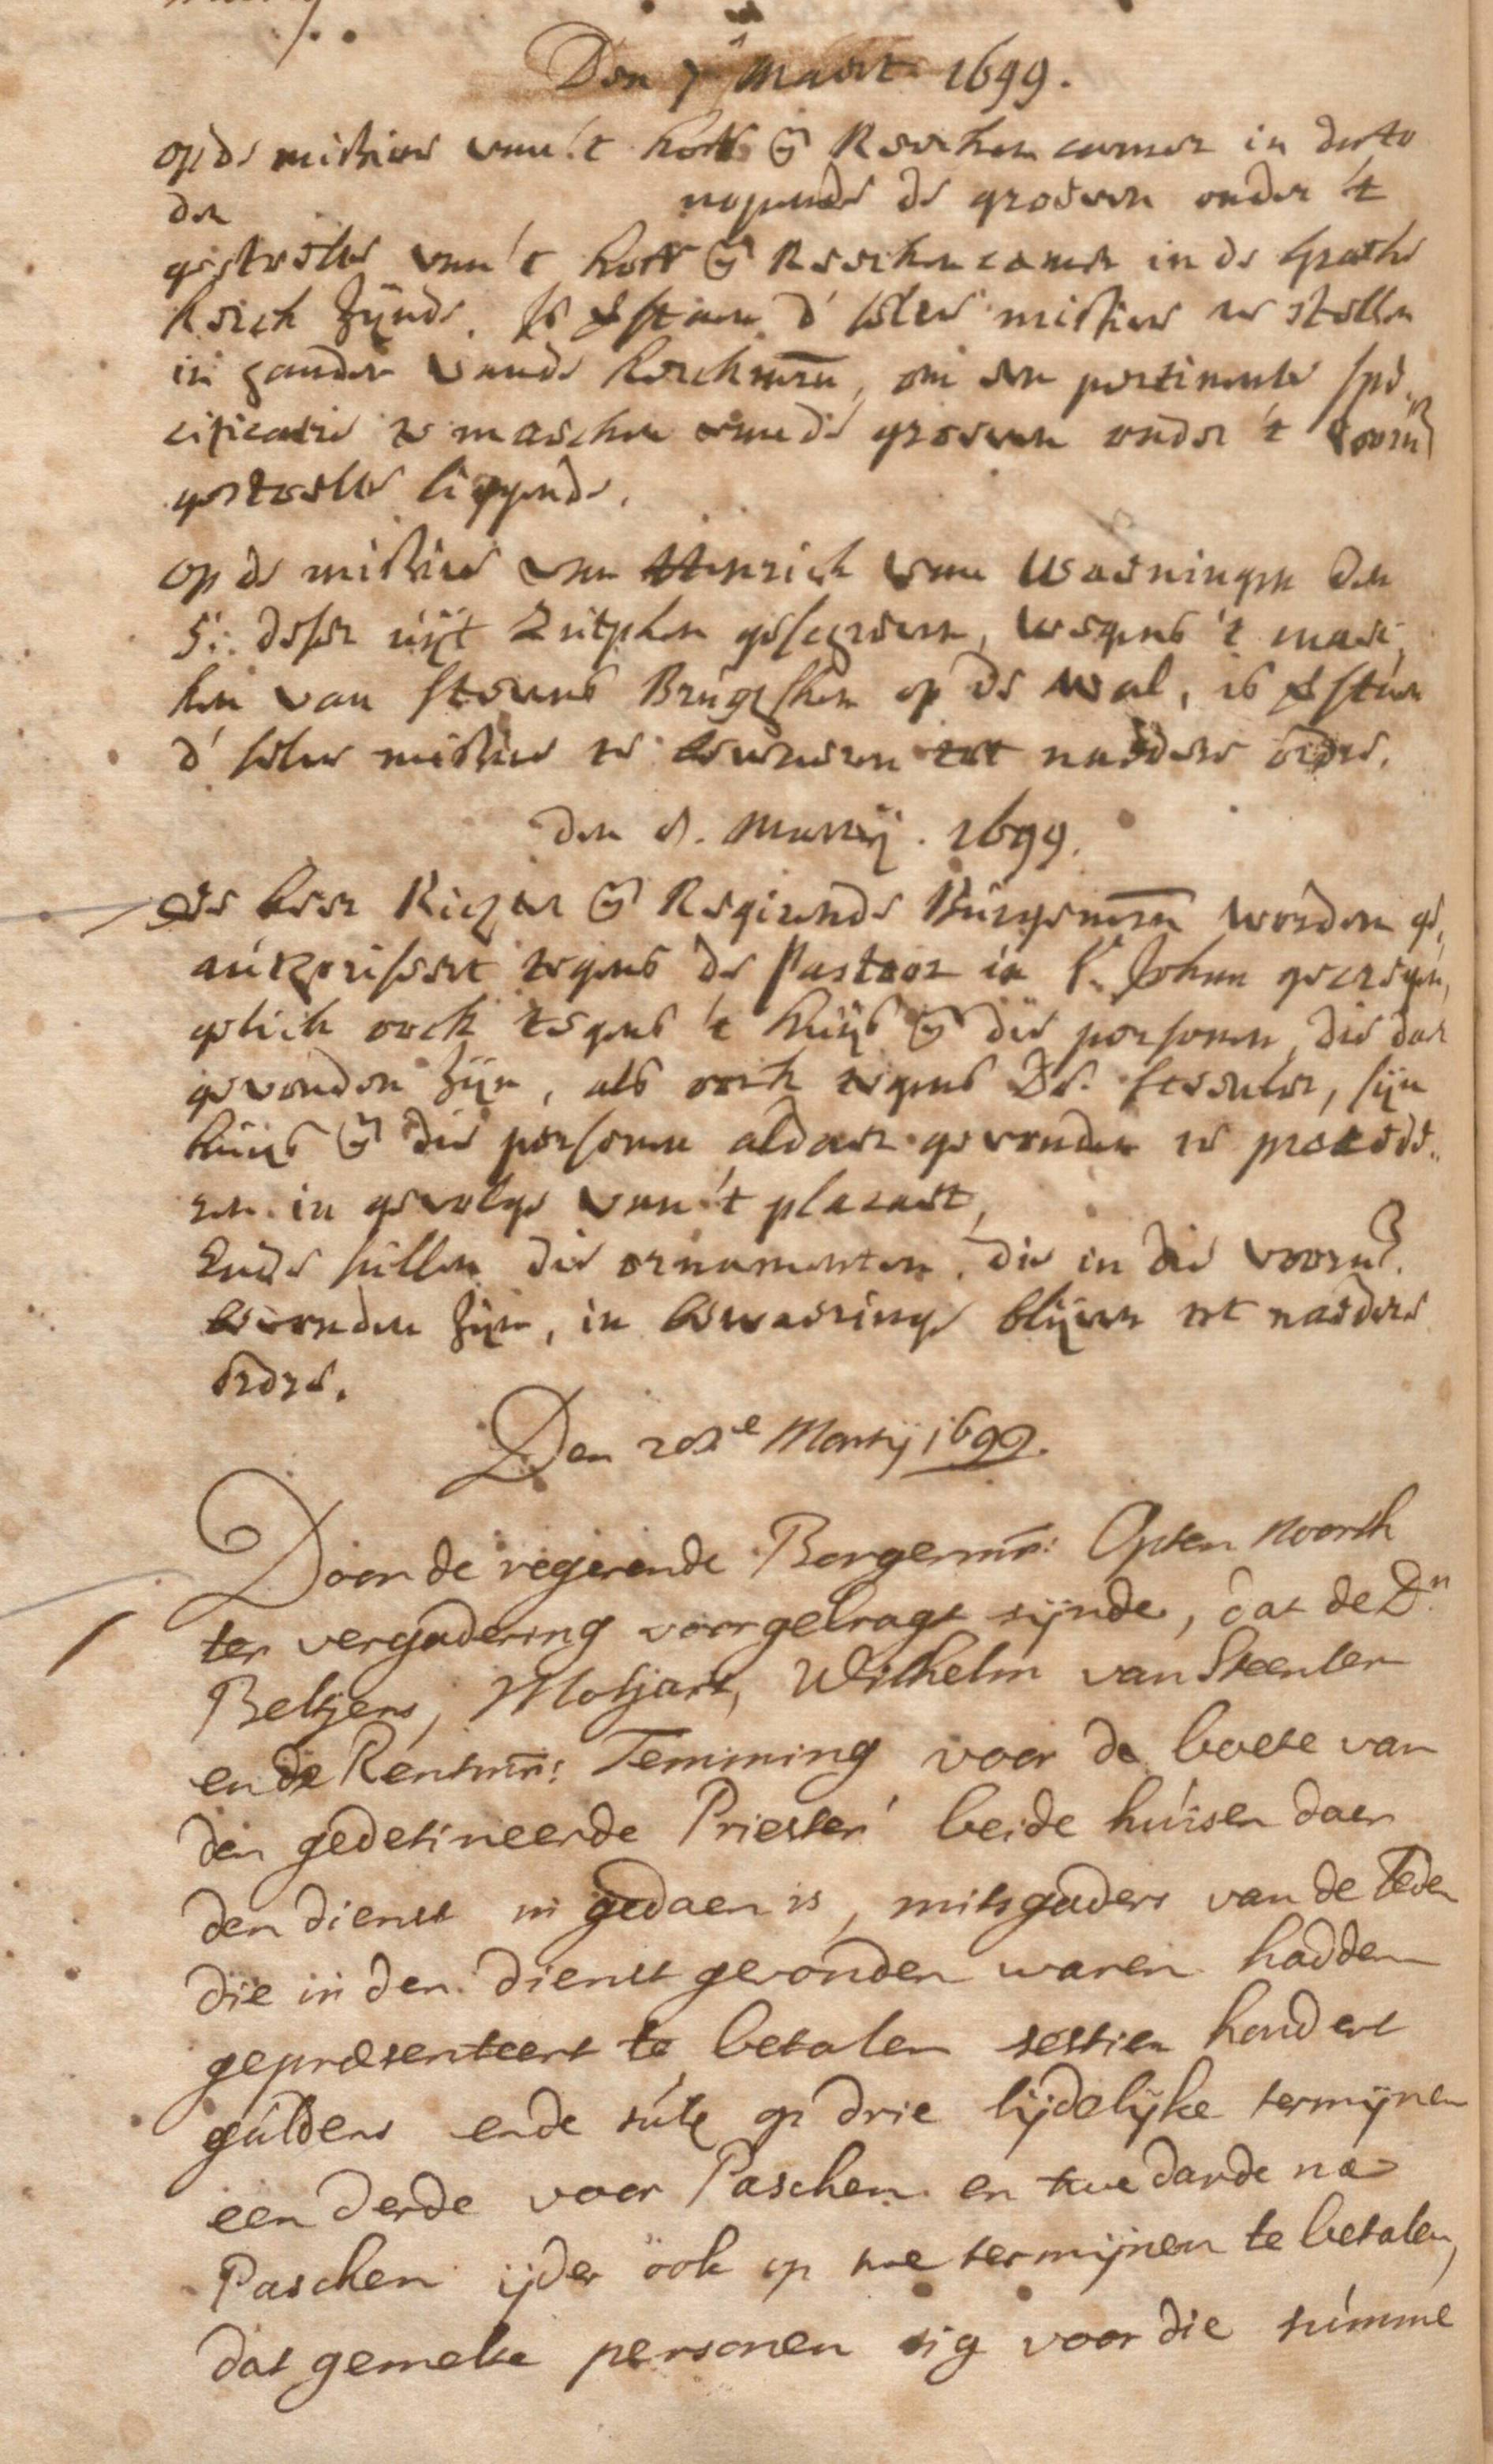 Den 7 Maert 1699.
op de missive van 't hoff & Reecken camer in dato
den nopende de graeven onder 't
gestoelte van 't hoff & Reeckencamer in de Groete
Kerck zijnde. Is verstaen d' selve missive te stellen
in handen vande Kerckmrn, om een pertinente spe„
cificatie te maecken vande graeven onder 't voorn
gestoelte liggende.
op de missive van Henrich van Waeningen den
5: deser uijt Zutphen geschreven, wegens 't maec„
ken van steene Bruggsken op de wal, is verstaen
d' selve missive te bewaeren tot naedere order.
den 8. Martij. 1699.
De heer Richter & Regierende Burgemrn worden ge„
authoriseert tegens de Pastoor in St. Johan gecregen,
gelick oock tegens 't huijs & die personen, die daer
gevonden zijn, als oock tegens Dr. Steenler, sijn
huijs & die personen aldaer gevonden te procede„
ren in gevolge van 't placaet,
Ende sullen die ornamenten, die in die voorn.
bevonden zijn, in bewaeringe blijven tot naedere
order.
Den 20e Martij 1699.
Door de regerende Borgermr: Opten Noorth
ter vergadering voorgedragt sijnde, dat de Dn
Beltjens, Motjaert, Wilhelm van Steenler
en de Rentmr: Temming voor de boete van
den gedetineerde Priester beide huisen daer
den dienst in gedaen is, mitsgaders van de Leden
die in den dienst gevonden waren hadden
gepræsenteert te betalen sestien hondert
guldens ende sulx op drie tijdelijke termijnen
een derde voor Paschen en twe darde na
Paschen ijder ook op twe termijnen te betalen,
dat gemelte personen sig voor die summe